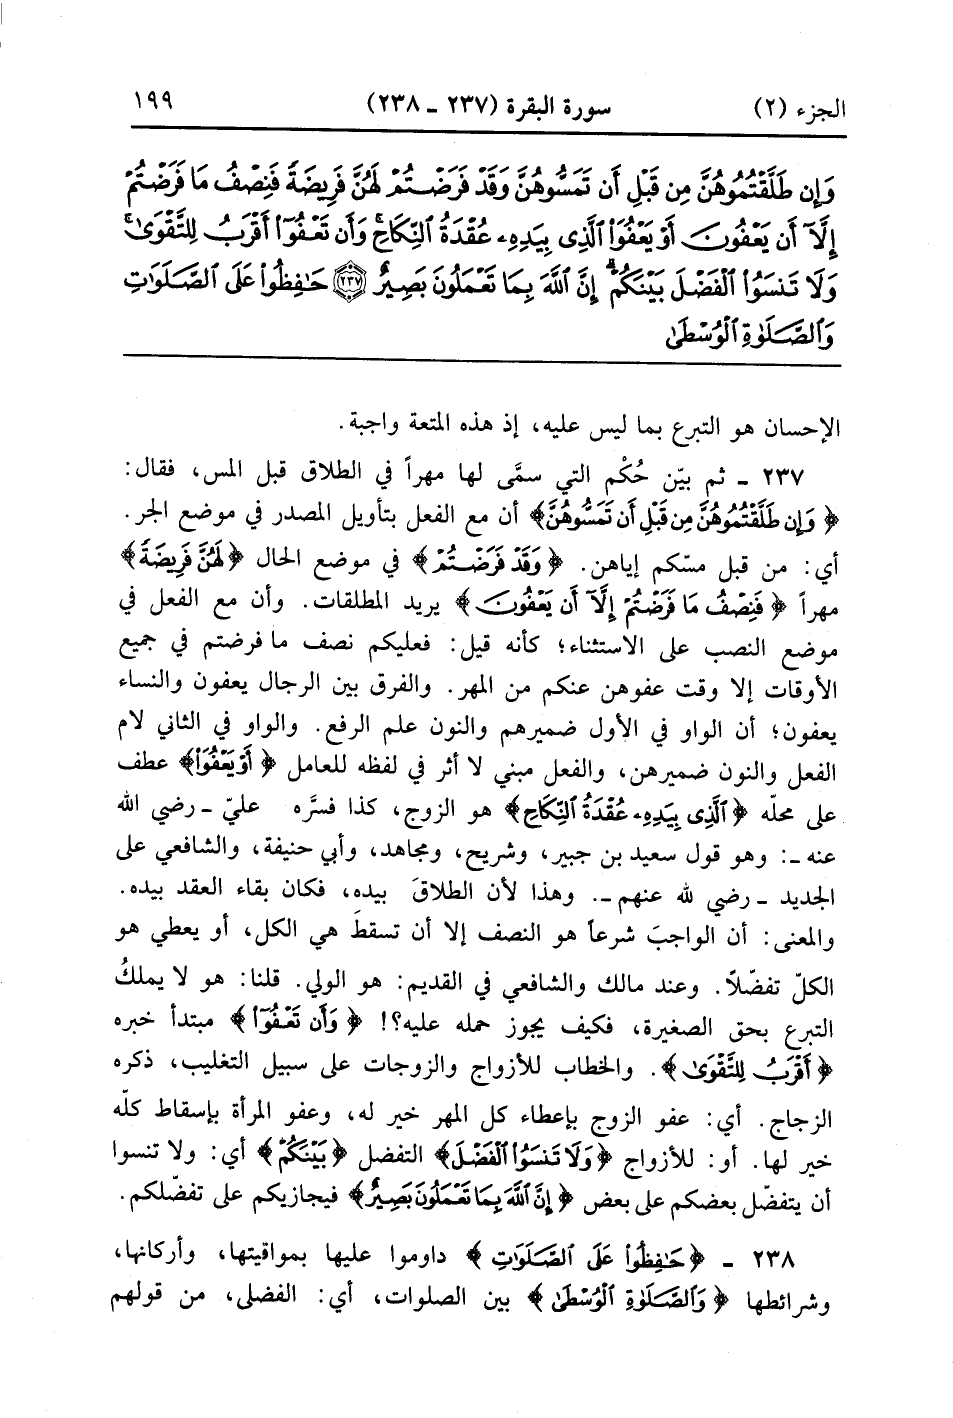 الجزء (٢) سورة البقرة (٢٣٧ ـ ٢٣٨) ١٩٩
وَإِن طَلَّقْتُمُوهُنَّ مِن قَبْلِ أَن تَمَسُّوهُنَّ وَقَدْ فَرَضْتُمْ لَهُنَّ فَرِيضَةً فَنِصْفُ مَا فَرَضْتُمْ
إِلَّآ أَن يَعْفُونَ أَوْ يَعْفُوَا۟ ٱلَّذِى بِيَدِهِۦ عُقْدَةُ ٱلنِّكَاحِ ۚ وَأَن تَعْفُوٓا۟ أَقْرَبُ لِلتَّقْوَىٰ ۚ
وَلَا تَنسَوُا۟ ٱلْفَضْلَ بَيْنَكُمْ ۚ إِنَّ ٱللَّهَ بِمَا تَعْمَلُونَ بَصِيرٌ ﴿٢٣٧﴾ حَـٰفِظُوا۟ عَلَى ٱلصَّلَوَٰتِ
وَٱلصَّلَوٰةِ ٱلْوُسْطَىٰ
الإحسان هو التبرع بما ليس عليه، إذ هذه المتعة واجبة.
٢٣٧ ـ ثم بيّن حُكْم التي سمَّى لها مهراً في الطلاق قبل المس، فقال:
﴿وَإِن طَلَّقْتُمُوهُنَّ مِن قَبْلِ أَن تَمَسُّوهُنَّ﴾ أن مع الفعل بتأويل المصدر في موضع الجر.
أي: من قبل مسّكم إياهن. ﴿وَقَدْ فَرَضْتُمْ﴾ في موضع الحال ﴿لَهُنَّ فَرِيضَةً﴾
مهراً ﴿فَنِصْفُ مَا فَرَضْتُمْ إِلَّآ أَن يَعْفُونَ﴾ يريد المطلقات. وأن مع الفعل في
موضع النصب على الاستثناء؛ كأنه قيل: فعليكم نصف ما فرضتم في جميع
الأوقات إلا وقت عفوهن عنكم من المهر. والفرق بين الرجال يعفون والنساء
يعفون؛ أن الواو في الأول ضميرهم والنون علم الرفع. والواو في الثاني لام
الفعل والنون ضميرهن، والفعل مبني لا أثر في لفظه للعامل ﴿أَوْ يَعْفُوَا۟﴾ عطف
على محلّه ﴿ٱلَّذِى بِيَدِهِۦ عُقْدَةُ ٱلنِّكَاحِ﴾ هو الزوج، كذا فسَّره عليّ ـ رضي الله
عنه ـ: وهو قول سعيد بن جبير، وشريح، ومجاهد، وأبي حنيفة، والشافعي على
الجديد ـ رضي لله عنهم ـ. وهذا لأن الطلاقَ بيده، فكان بقاء العقد بيده.
والمعنى: أن الواجبَ شرعاً هو النصف إلا أن تسقطَ هي الكل، أو يعطي هو
الكلّ تفضّلاً. وعند مالك والشافعي في القديم: هو الولي. قلنا: هو لا يملكُ
التبرع بحق الصغيرة، فكيف يجوز حمله عليه؟! ﴿وَأَن تَعْفُوٓا۟﴾ مبتدأ خبره
﴿أَقْرَبُ لِلتَّقْوَىٰ﴾. والخطاب للأزواج والزوجات على سبيل التغليب، ذكره
الزجاج. أي: عفو الزوج بإعطاء كل المهر خير له، وعفو المرأة بإسقاط كلّه
خير لها. أو: للأزواج ﴿وَلَا تَنسَوُا۟ ٱلْفَضْلَ﴾ التفضل ﴿بَيْنَكُمْ﴾ أي: ولا تنسوا
أن يتفضّل بعضكم على بعض ﴿إِنَّ ٱللَّهَ بِمَا تَعْمَلُونَ بَصِيرٌ﴾ فيجازيكم على تفضّلكم.
٢٣٨ ـ ﴿حَـٰفِظُوا۟ عَلَى ٱلصَّلَوَٰتِ﴾ داوموا عليها بمواقيتها، وأركانها،
وشرائطها ﴿وَٱلصَّلَوٰةِ ٱلْوُسْطَىٰ﴾ بين الصلوات، أي: الفضلى، من قولهم